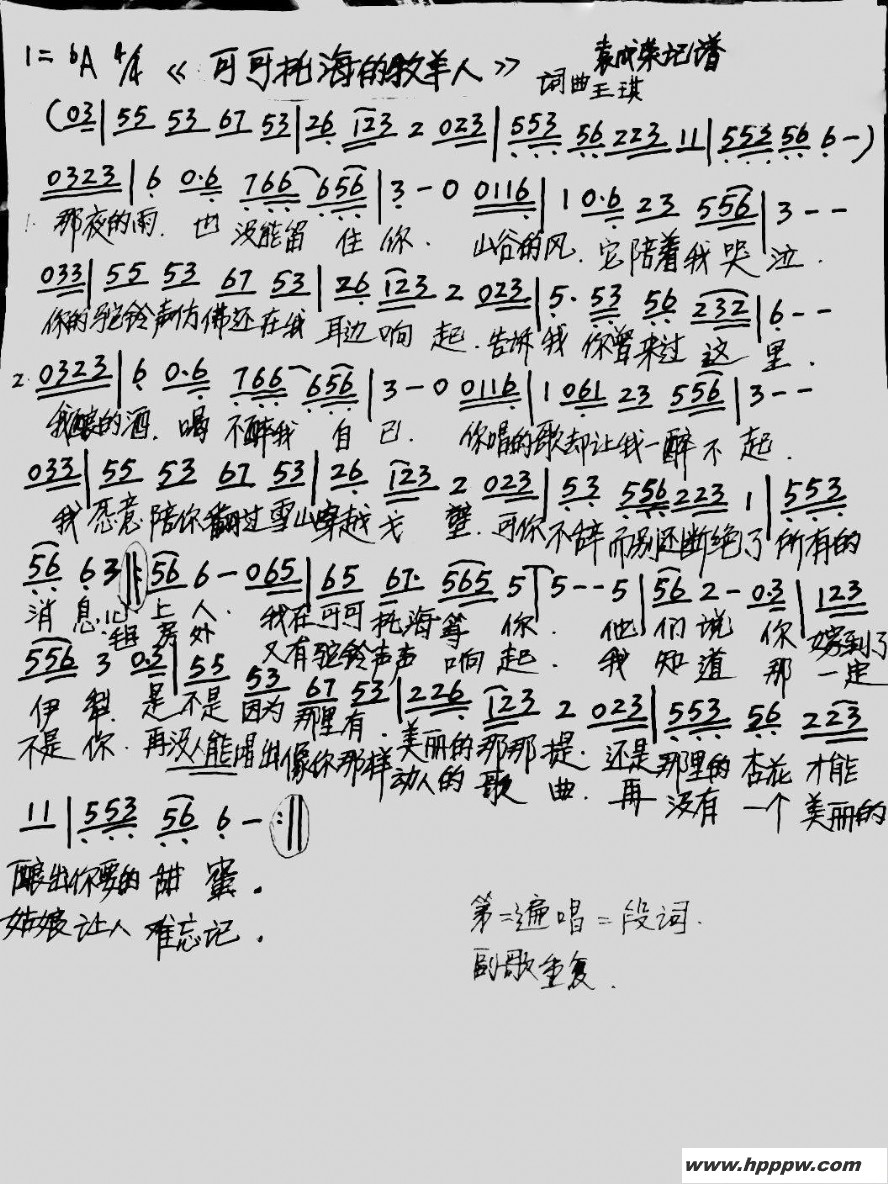 1=ᵇA 4/4 《可可托海的牧羊人》 词曲王琪 袁成荣记谱
(03|55 53 67 53|26 123 2 023|553 56 223 11|553 56 6-)
0323|6 0·6 766 656|3-0 0116|1 0·6 23 556|3--
1. 那夜的雨. 也没能留住你. 山谷的风. 它陪着我哭泣.
033|55 53 67 53|26 123 2 023|5· 53 56 232|6--
你的驼铃声仿佛还在我耳边响起. 告诉我你曾来过这里.
2. 0323|6 0·6 766 656|3-0 0116|1 061 23 556|3--
我酿的酒. 喝不醉我自己. 你唱的歌却让我一醉不起.
033|55 53 67 53|26 123 2 023|53 556 223 1|553
我愿意陪你翻过雪山穿越戈壁. 可你不辞而别还断绝了所有的
56 63‖:56 6-065|65 67· 565 5|5--5|56 2-0·3|123
消息. 心上人. 我在可可托海等你. 他们说你嫁到了
毡房外 又有驼铃声声响起. 我知道那一定
556 3 0·3|55 53 67 53|226 123 2 023|553 56 223
伊犁. 是不是因为那里有. 美丽的那那提. 还是那里的杏花才能
不是你. 再没人能唱出像你那样动人的歌曲. 再没有一个美丽的
11|553 56 6-:‖
酿出你要的甜蜜.
姑娘让人难忘记.
第二遍唱二段词.
副歌重复.
www.hpppw.com